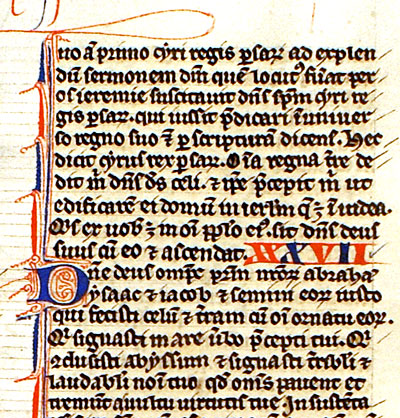 nno aut̄ primo cyri regis ꝑsaꝝ ad explen
dū sermonem dn̄i quē locutꝰ fu̓at ꝑ er
os ieremie suscitauit dn̄s sp̄m cyri re
gis ꝑsaꝝ. qui iussit p̄dicari ī uniuer
so regno suo ⁊ ꝑ scripturam dicens. Hec
dicit cyrus rex ꝑsaꝝ. Om̄ia regna tr̄e de
dit m̄ dn̄s dꝰ celi. ⁊ ip̄e p̄cepit m̄ ut
edificarē ei domū in ierlm̄ q̄ ē ī iudea.
Qͥs ex uob̄ ē in om̄i pp̄lo eiꝰ. sit dn̄s deus
suus cū eo ⁊ ascendat. XXXVII
Dn̄e deus om̄ps pr̄m nr̄oꝝ abrahā
⁊ ysaac ⁊ iacob ⁊ semini eoꝝ iusto
qui fecisti celū ⁊ terram cū om̄i ornatu eoꝝ.
Qͥ signasti mare u̓bo p̄cepti tui. Qͥ
ꝯclusisti abyssum ⁊ signasti terr̄ibli ⁊
laudabili noī tuo. qd̄ om̄s pauent et
tremūt a uultu uirtutis tue. In sustēta